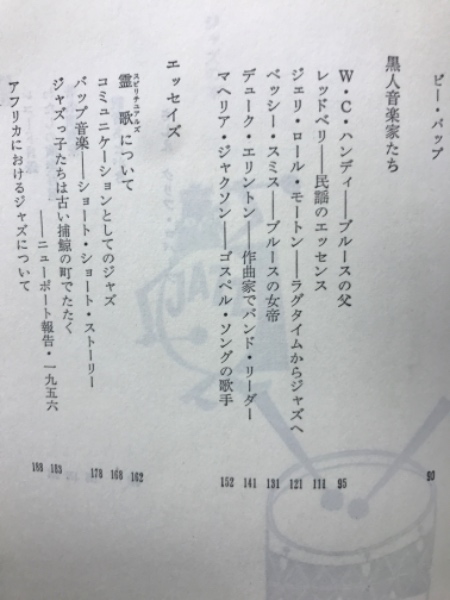 ビー・バップ 90
黒人音楽家たち
W・C・ハンディ――ブルースの父 95
レッドベリ――民謡のエッセンス 111
ジェリ・ロール・モートン――ラグタイムからジャズへ 121
ベッシー・スミス――ブルースの女帝 131
デューク・エリントン――作曲家でバンド・リーダー 141
マヘリア・ジャクソン――ゴスペル・ソングの歌手 152
エッセイズ
霊歌について 162
スピリチュアルズ
コミュニケーションとしてのジャズ 168
バップ音楽――ショート・ショート・ストーリー 178
ジャズっ子たちは古い捕鯨の町でたたく
――ニューポート報告・一九五六 185
アフリカにおけるジャズについて 188